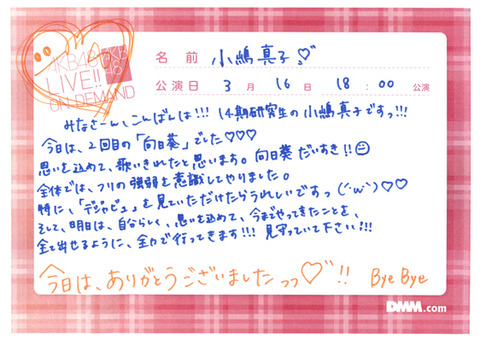 AKB48
LIVE!!
ON DEMAND
名前 小嶋真子
公演日 3月16日 18:00公演
みなさーん、こんばんは!!! 14期研究生の小嶋真子ですっ!!!
今日は、2回目の「向日葵」でした♡♡♡
思いを込めて、歌いきれたと思います。向日葵 だいすき!!☺
全体では、フリの強弱を意識してやりました。
特に、「デジャビュ」を見ていただけたらうれしいですっ(´ω`)♡♡
そして、明日は、自分らしく、思いを込めて、今までやってきたことを、
全て出せるように、全力で行ってきます!!! 見守っていて下さい!!!
今日は、ありがとうございましたっっ♡!! Bye Bye
DMM.com